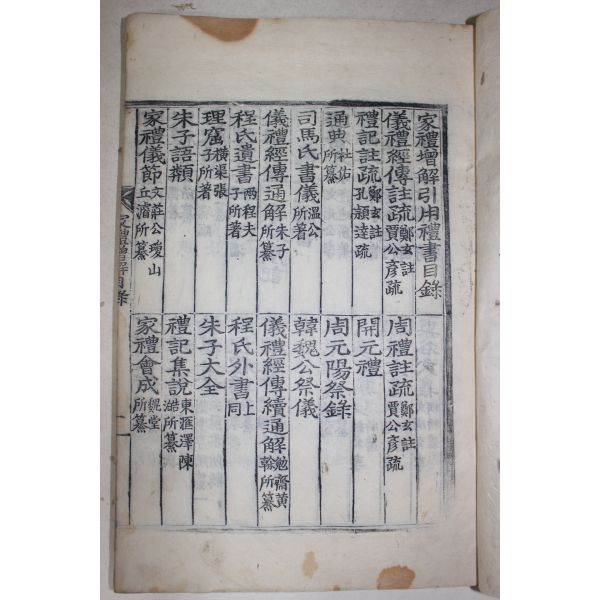 家禮增解引用禮書目錄
儀禮經傳註疏 鄭玄註 賈公彦疏
周禮註疏 鄭玄註 賈公彦疏
禮記註疏 鄭玄註 孔穎達疏
開元禮
通典 杜佑所纂
周元陽祭錄
司馬氏書儀 溫公所著
韓魏公祭儀
儀禮經傳通解 朱子所纂
儀禮經傳續通解 勉齋黃榦所纂
程氏遺書 兩程夫子所著
程氏外書 同上
理窟 橫渠張子所著
朱子大全
朱子語類
禮記集說 東匯澤陳澔所纂
家禮儀節 文莊公瓊山丘濬所纂
家禮會成 魏堂所纂
家禮增解目錄
一